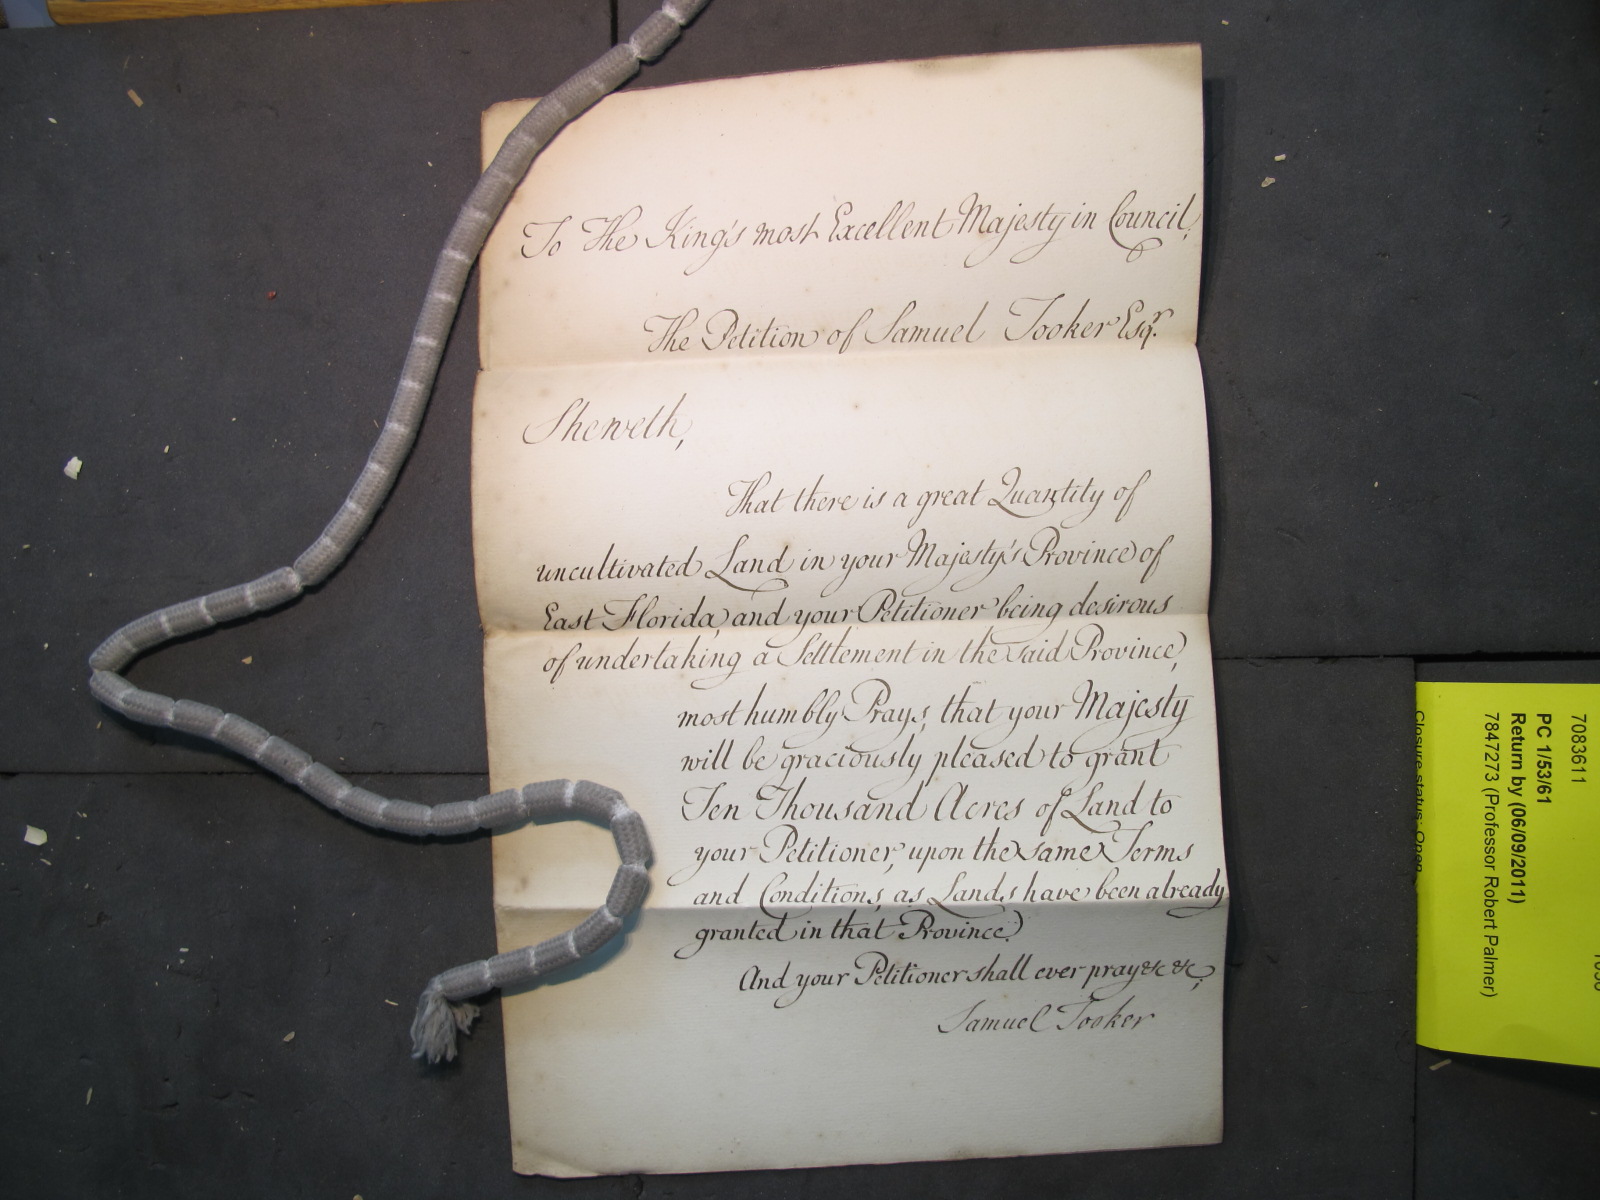 To The King's most Excellent Majesty in Council,
The Petition of Samuel Tooker Esqr.
Sheweth,
That there is a great Quantity of
uncultivated Land in your Majesty's Province of
East Florida, and your Petitioner being desirous
of undertaking a Settlement in the said Province,
most humbly Prays, that your Majesty
will be graciously pleased to grant
Ten Thousand Acres of Land to
your Petitioner, upon the same Terms
and Conditions, as Lands have been already
granted in that Province.
And your Petitioner shall ever pray &c &c,
Samuel Tooker
7083611
PC 1/53/61
Return by (06/09/2011)
7847273 (Professor Robert Palmer)
Closure status: Open